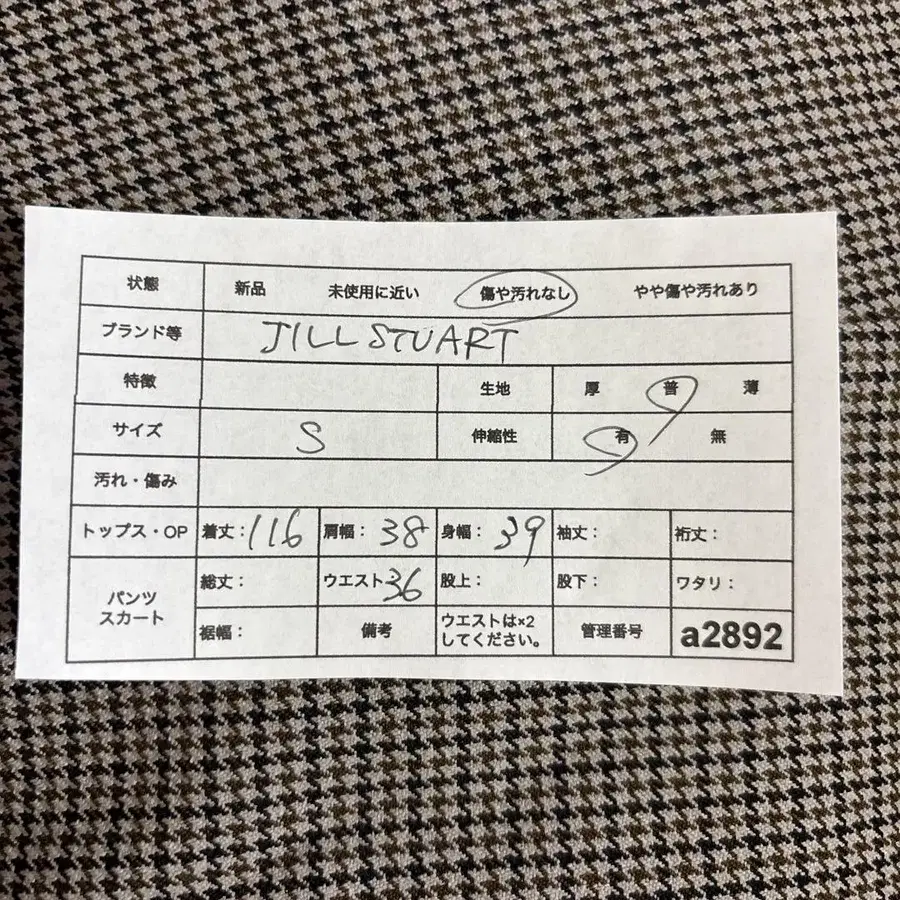 状態 新品 未使用に近い 傷や汚れなし やや傷や汚れあり
ブランド等 JILL STUART
特徴 生地 厚 普 薄
サイズ S 伸縮性 有 無
汚れ・傷み
トップス・OP 着丈：116 肩幅：38 身幅：39 袖丈： 裄丈：
パンツ スカート 総丈： ウエスト36 股上： 股下： ワタリ：
裾幅： 備考 ウエストは×2 してください。 管理番号 a2892